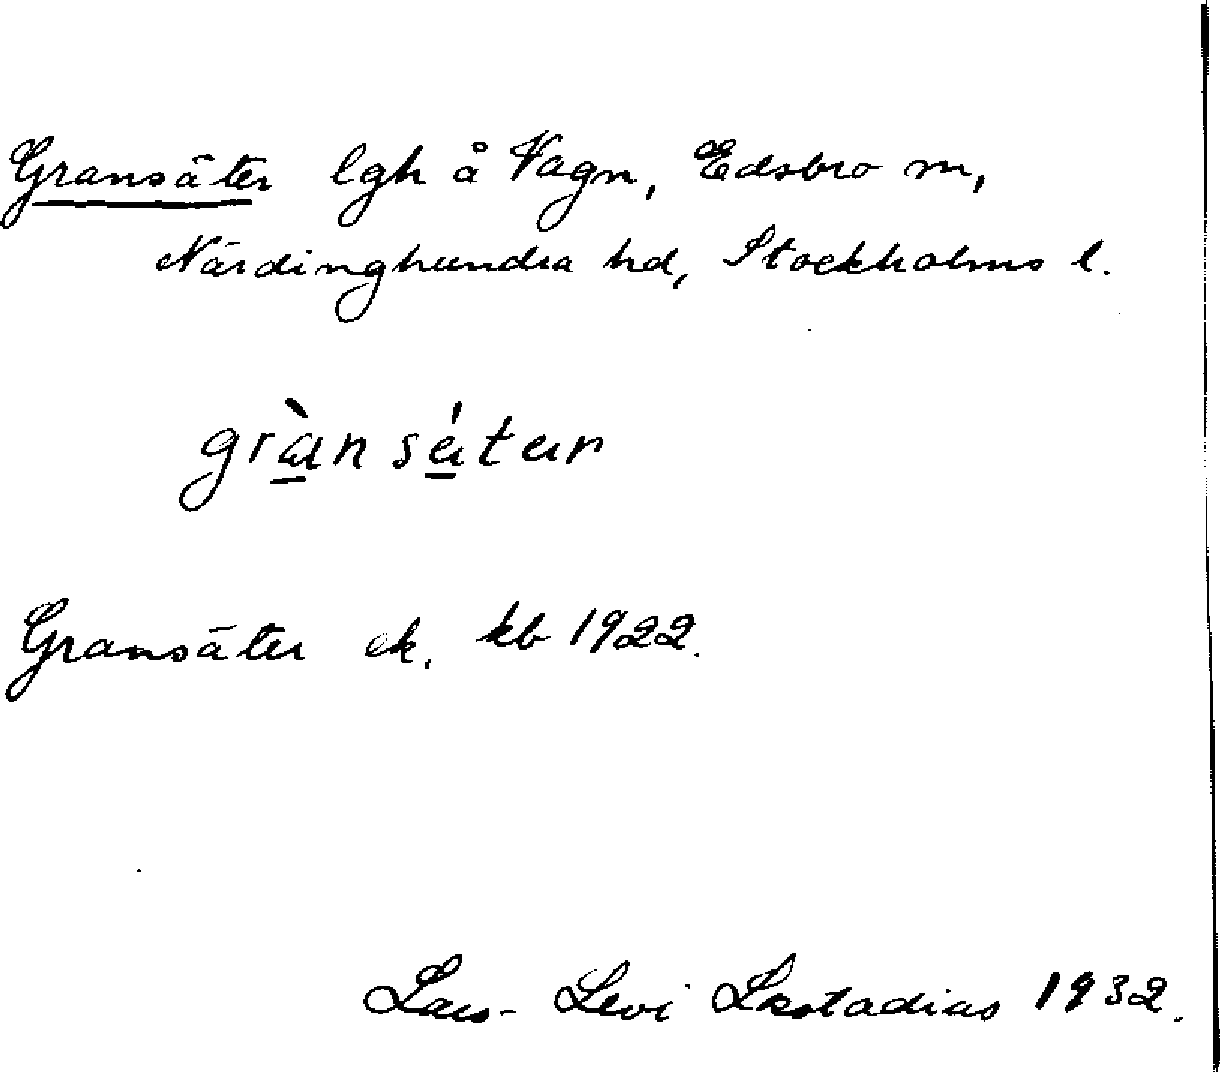 Gransäter lgh å Vagn, Edsbro sn,
Närdinghundra hd, Stockholms l.
gràn sä́tär
Gransäter ek. kb 1922.
Lars-Levi Læstadius 1932.